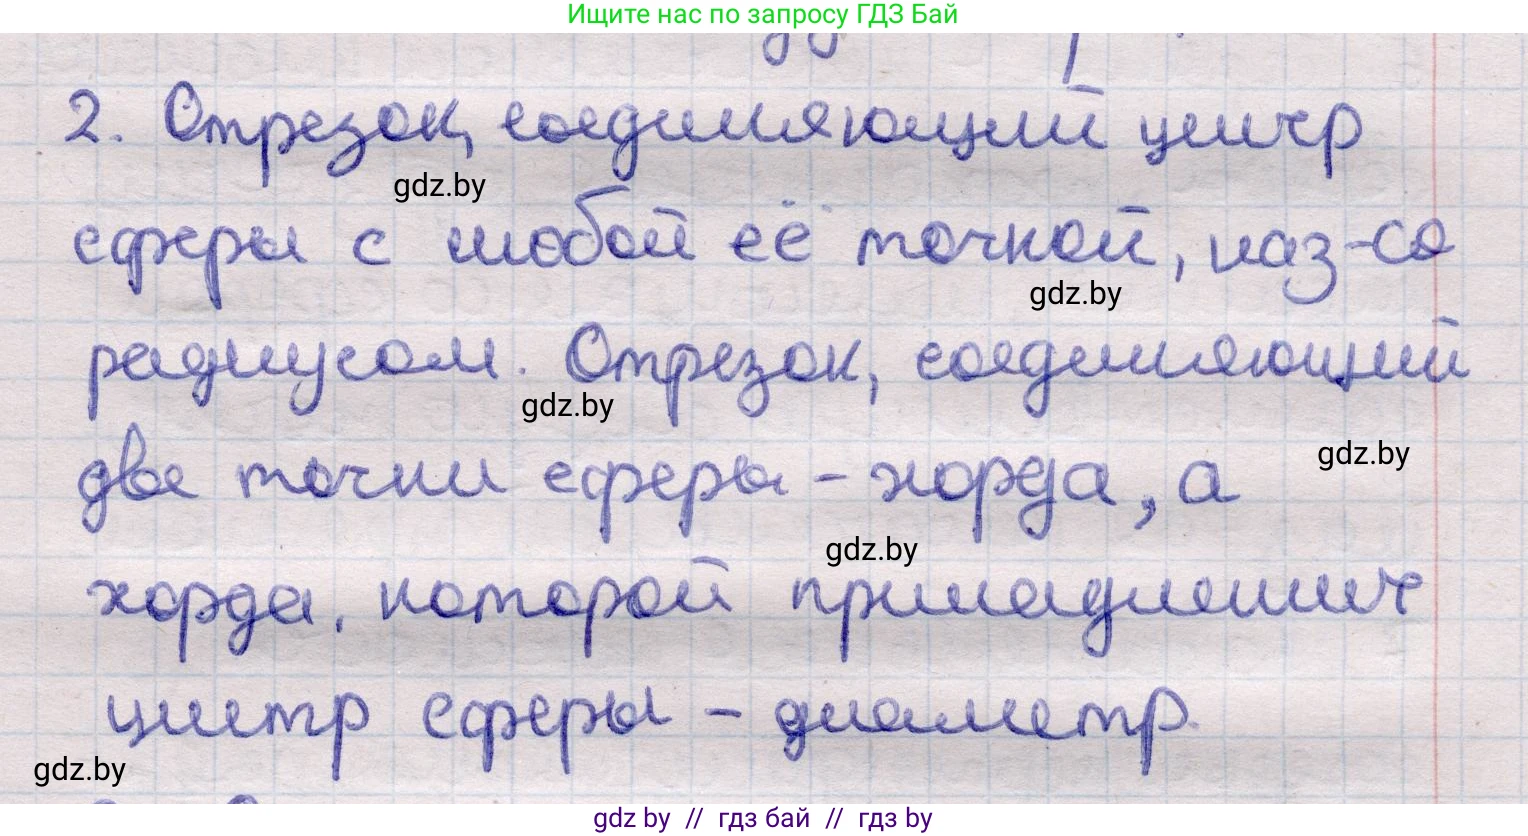 Ищите нас по запросу ГДЗ Бай
2. Отрезок, соединяющий центр
gdz.by
сферы с любой её точкой, наз-ся
gdz.by
радиусом. Отрезок, соединяющий
gdz.by
две точки сферы - хорда, а
gdz.by
gdz.by
хорда, которой принадлежит
центр сферы - диаметр.
gdz.by
gdz by // гдз бай // гдз by